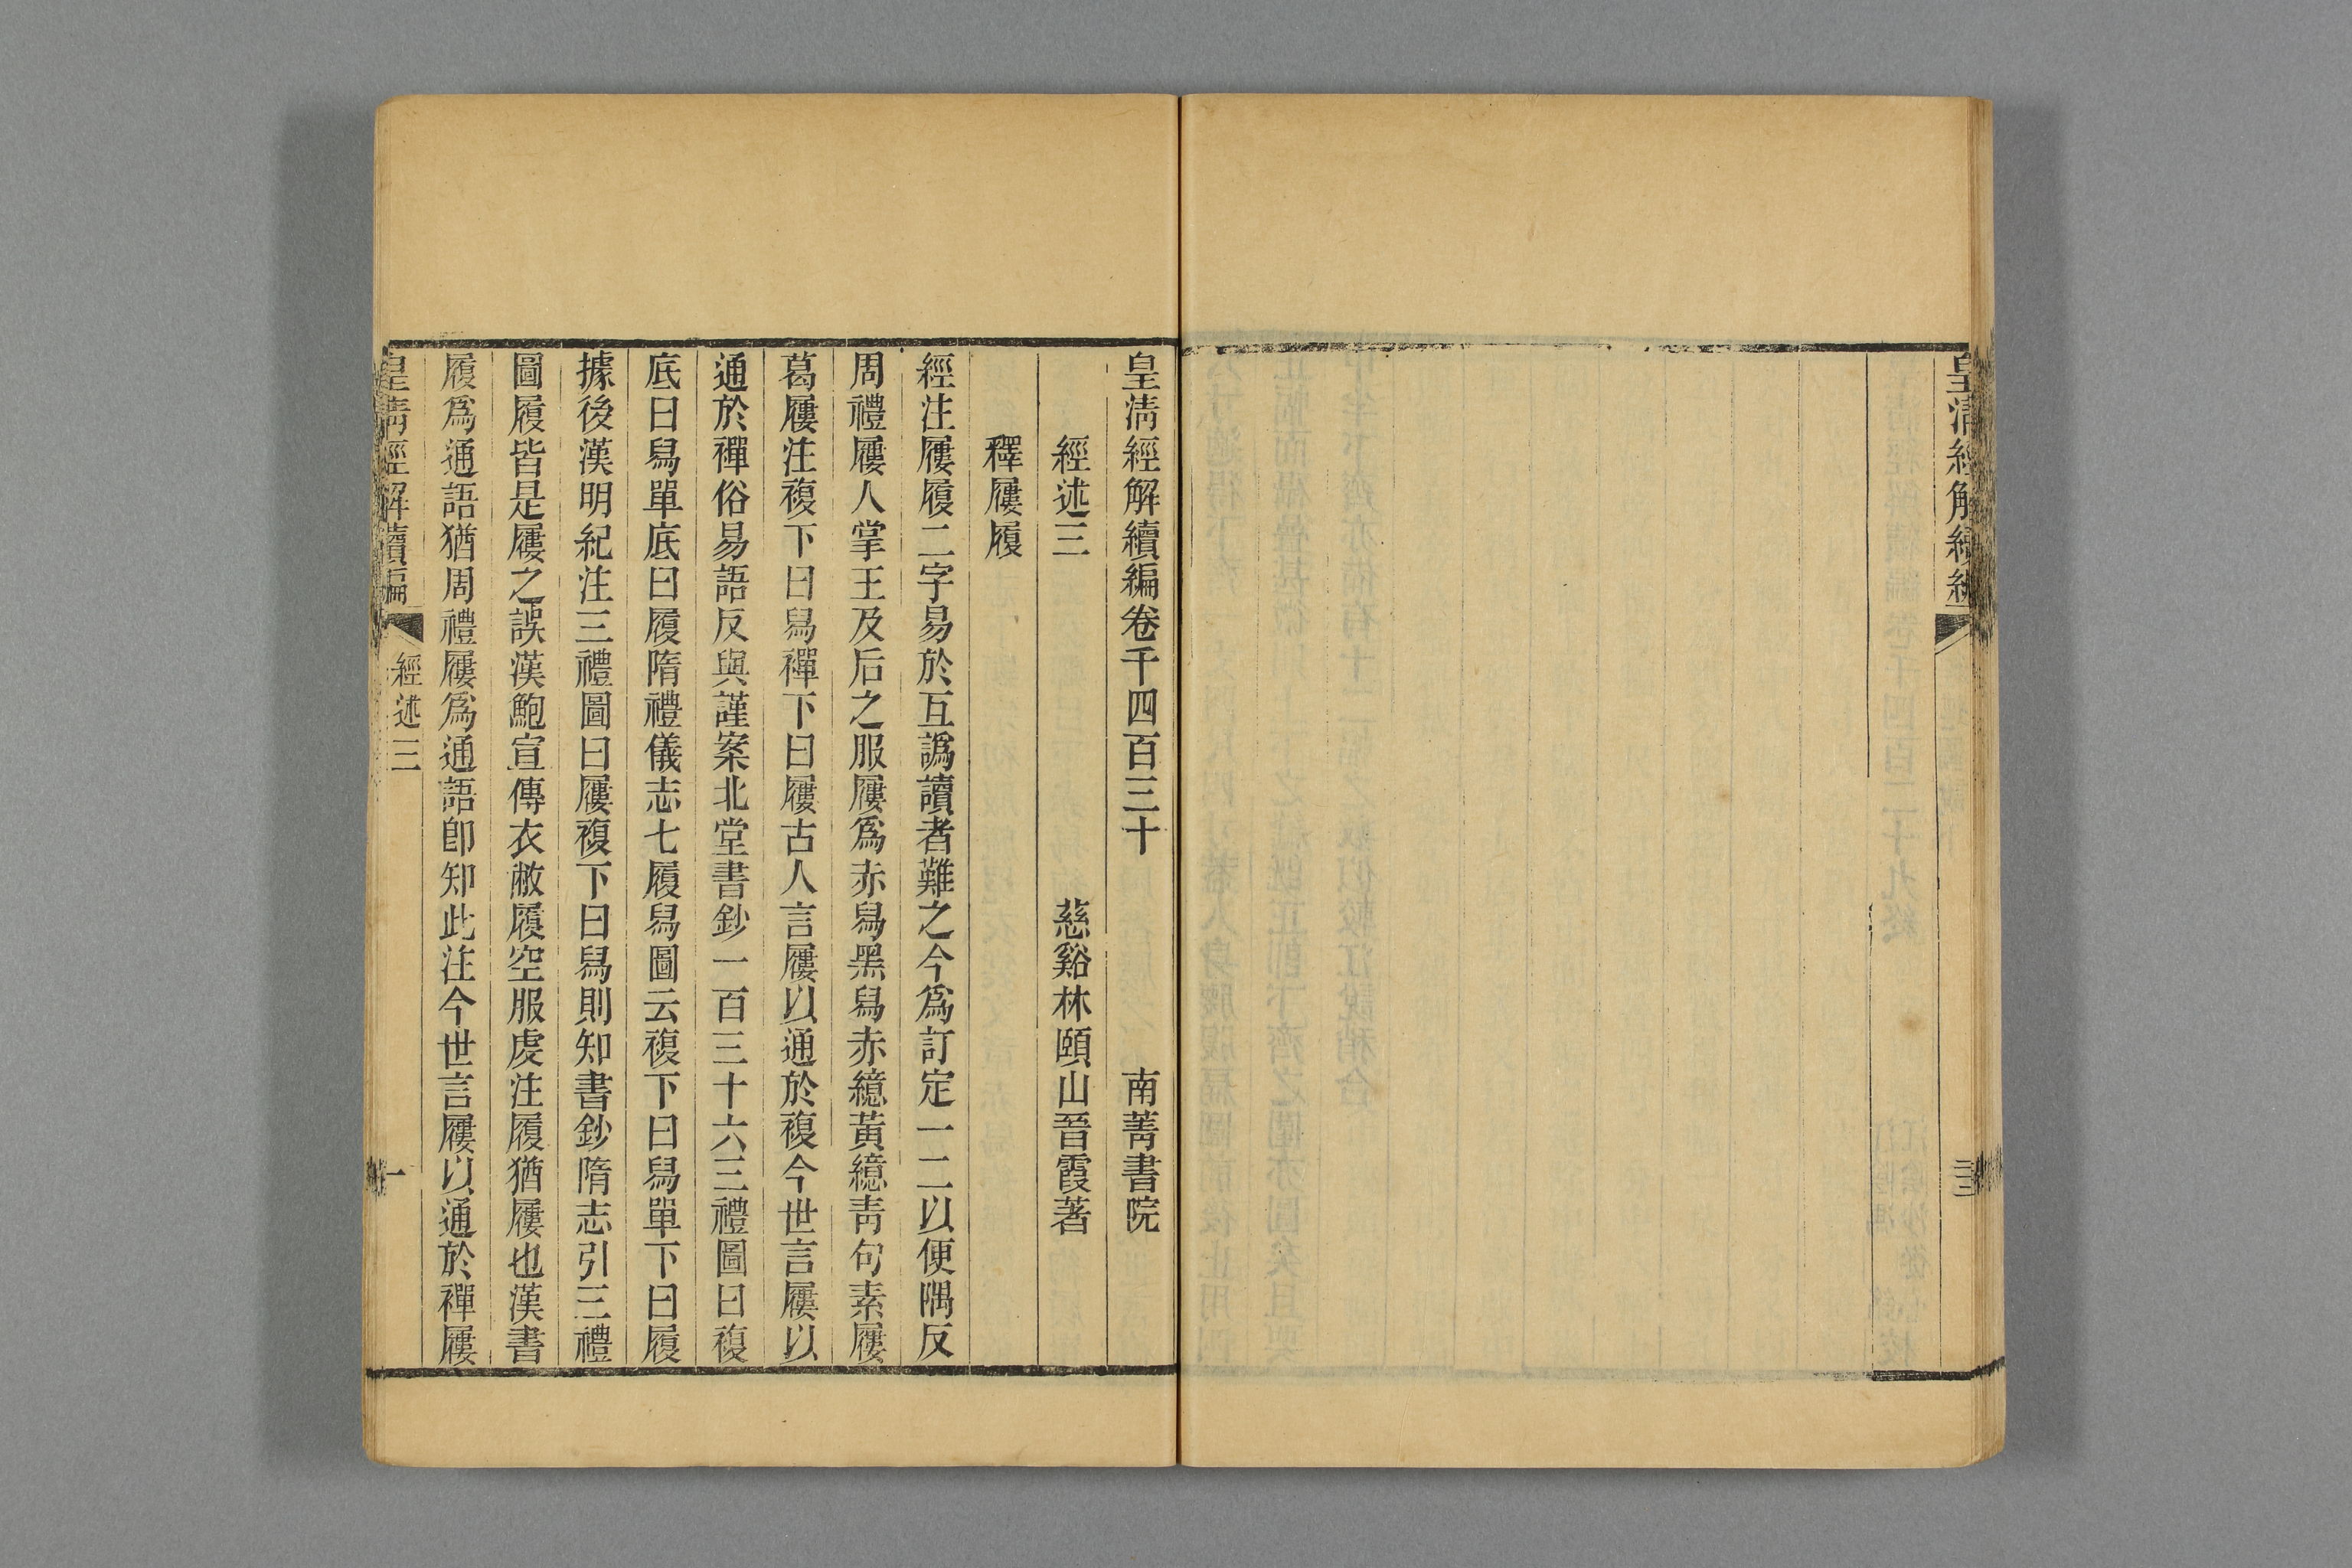 皇清經解續編
三三
皇清經解續編卷千四百三十　南菁書院
經述三　慈谿林頤山晉霞著
釋屨履
經注屨履二字易於互譌讀者難之今爲訂定一二以便隅反
周禮屨人掌王及后之服屨爲赤舄黑舄赤繶黃繶靑句素屨
葛屨注複下曰舄襌下曰屨古人言屨以通於複今世言屨以
通於襌俗易語反與謹案北堂書鈔一百三十六三禮圖曰複
底曰舄單底曰履隋禮儀志七履舄圖云複下曰舄單下曰履
據後漢明紀注三禮圖曰屨複下曰舄則知書鈔隋志引三禮
圖履皆是屨之誤漢鮑宣傳衣敝履空服虔注履猶屨也漢書
履爲通語猶周禮屨爲通語卽知此注今世言屨以通於襌屨
皇清經解續編
經述三
一